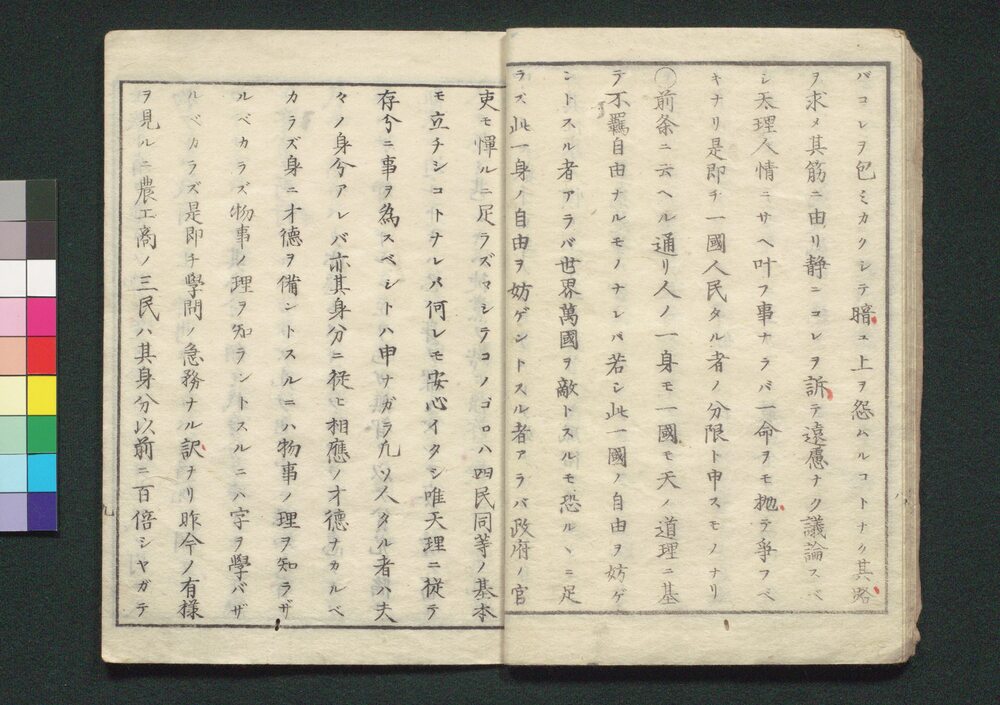 バコレヲ包ミカクシテ暗ニ上ヲ怨ハルコトナク其路
ヲ求メ其筋ニ由リ静ニコレヲ訴テ遠慮ナク議論スベ
シ天理人情ニサヘ叶フ事ナラバ一命ヲモ抛テ爭フベ
キナリ是即チ一國人民タル者ノ分限ト申スモノナリ
○前条ニ云ヘル通リ人ノ一身モ一國モ天ノ道理ニ基
テ不羈自由ナルモノナレバ若シ此一國ノ自由ヲ妨ゲ
ントスル者アラバ世界萬國ヲ敵トスルモ恐ルヽニ足
ラズ此一身ノ自由ヲ妨ゲントスル者アラバ政府ノ官
吏モ憚ルニ足ラズマシテコノゴロハ四民同等ノ基本
モ立チシコトナレバ何レモ安心イタシ唯天理ニ従テ
存分ニ事ヲ為スベシトハ申ナガラ凡ソ人タル者ハ夫
々ノ身分アレバ亦其身分ニ従ヒ相應ノ才德ナカルベ
カラズ身ニ才德ヲ備ントスルニハ物事ノ理ヲ知ラザ
ルベカラズ物事ノ理ヲ知ラントスルニハ字ヲ學バザ
ルベカラズ是即チ學問ノ急務ナル訳ナリ昨今ノ有様
ヲ見ルニ農工商ノ三民ハ其身分以前ニ百倍シヤガテ
九